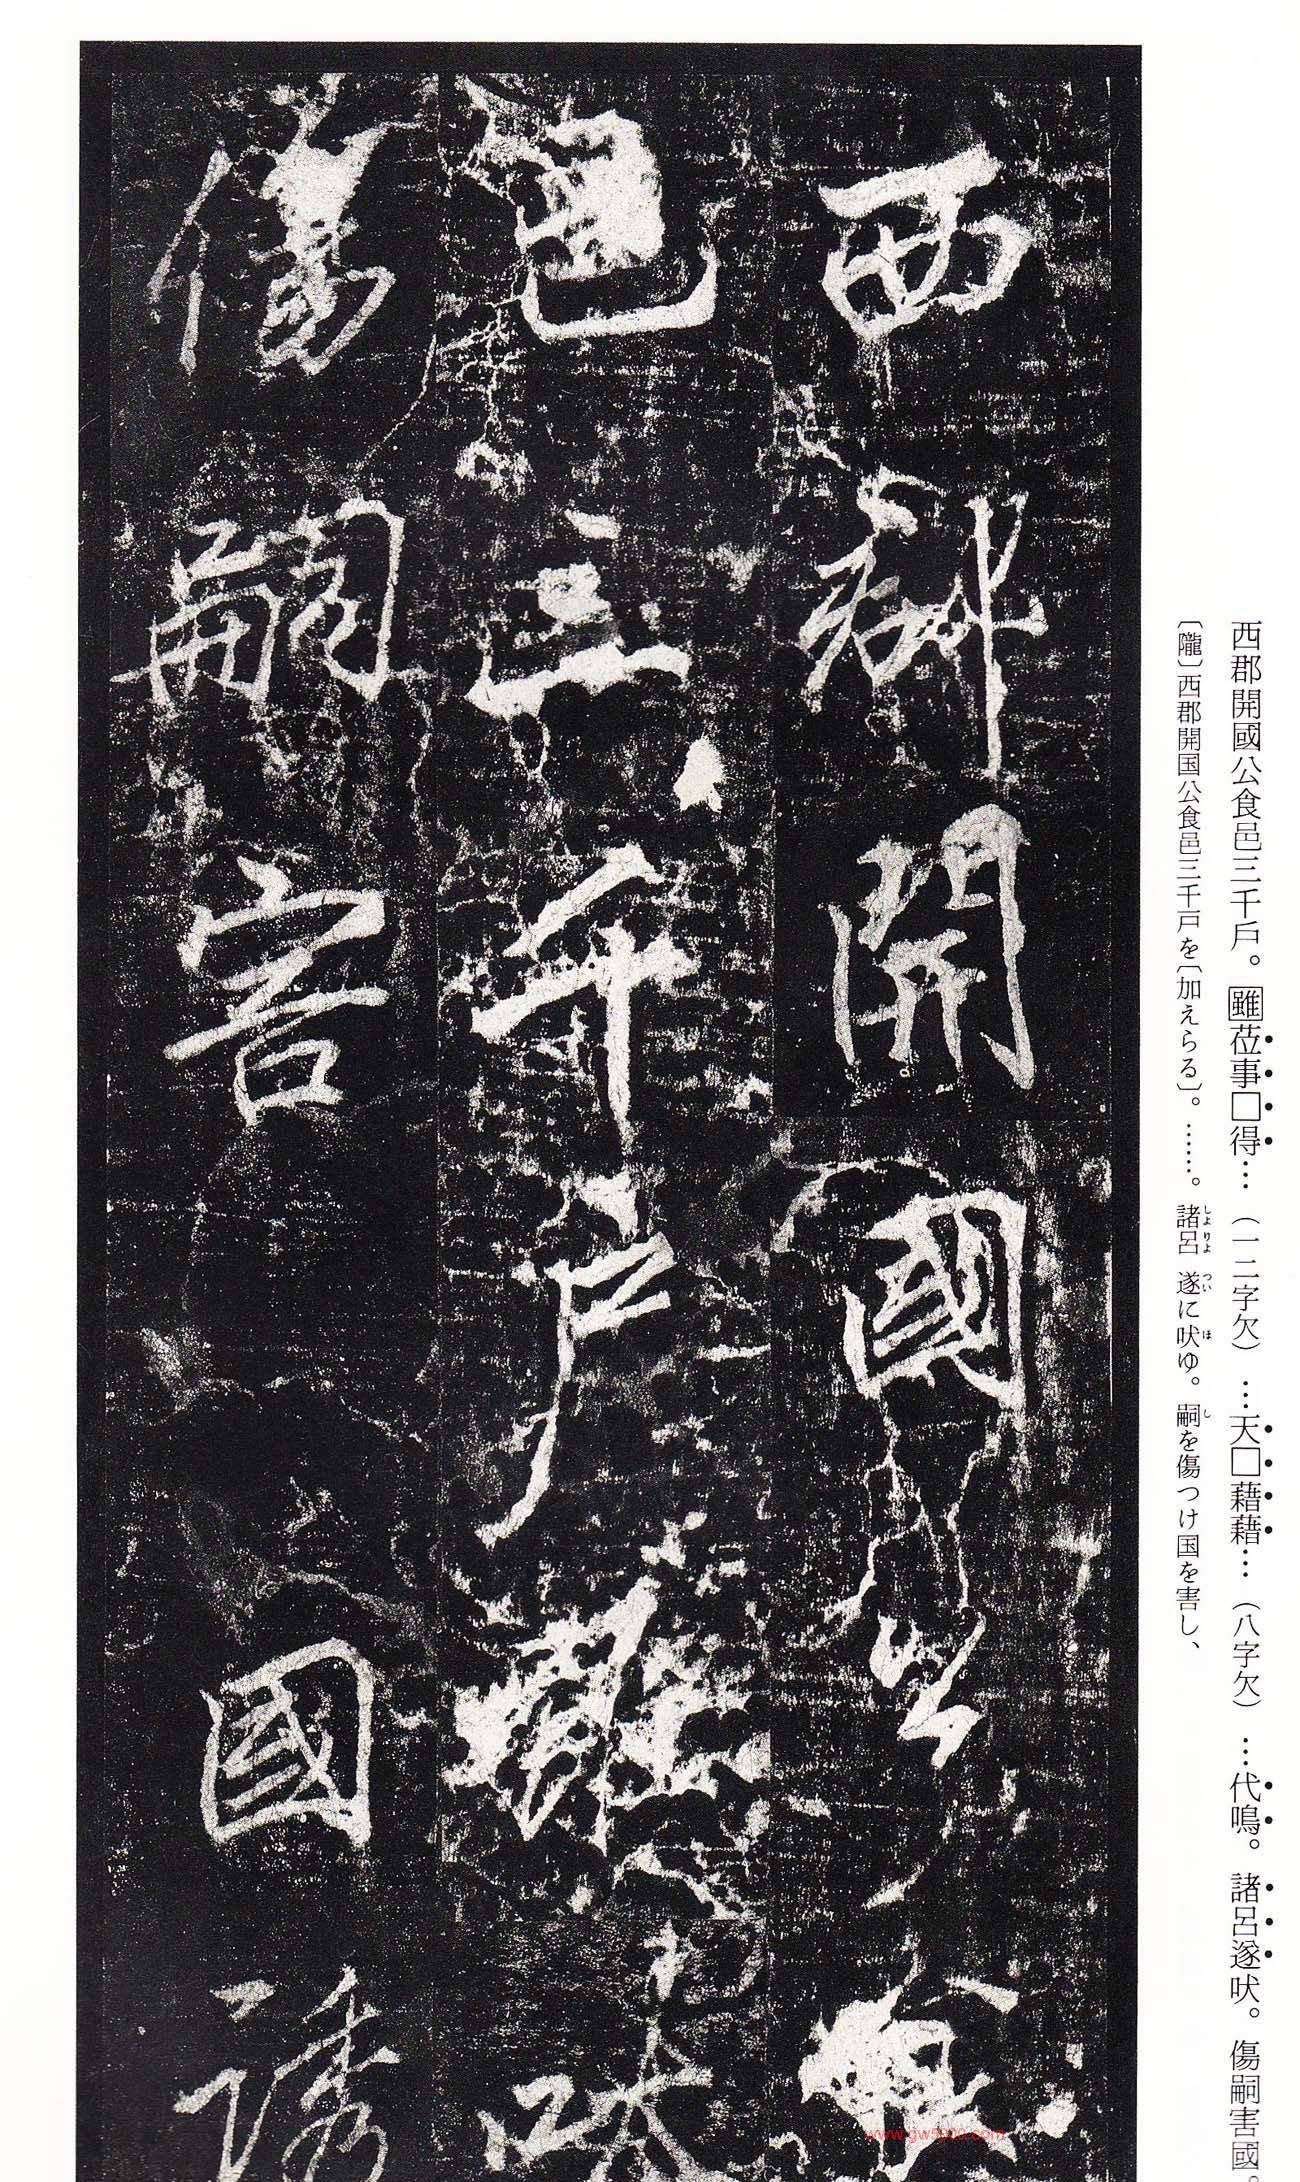 西郡開國公食邑三千戶。雖莅事□得…（一二字欠）…天□藉藉…（八字欠）…代鳴。諸呂遂吠。傷嗣害國。
〔隴〕西郡開国公食邑三千戸を〔加えらる〕。……。諸呂遂に吠ゆ。嗣を傷つけ国を害し、
しよりよ つい ほ し
西郡開國公食
邑三千戶雖吠
傷嗣害國誘
www.gw5000.com